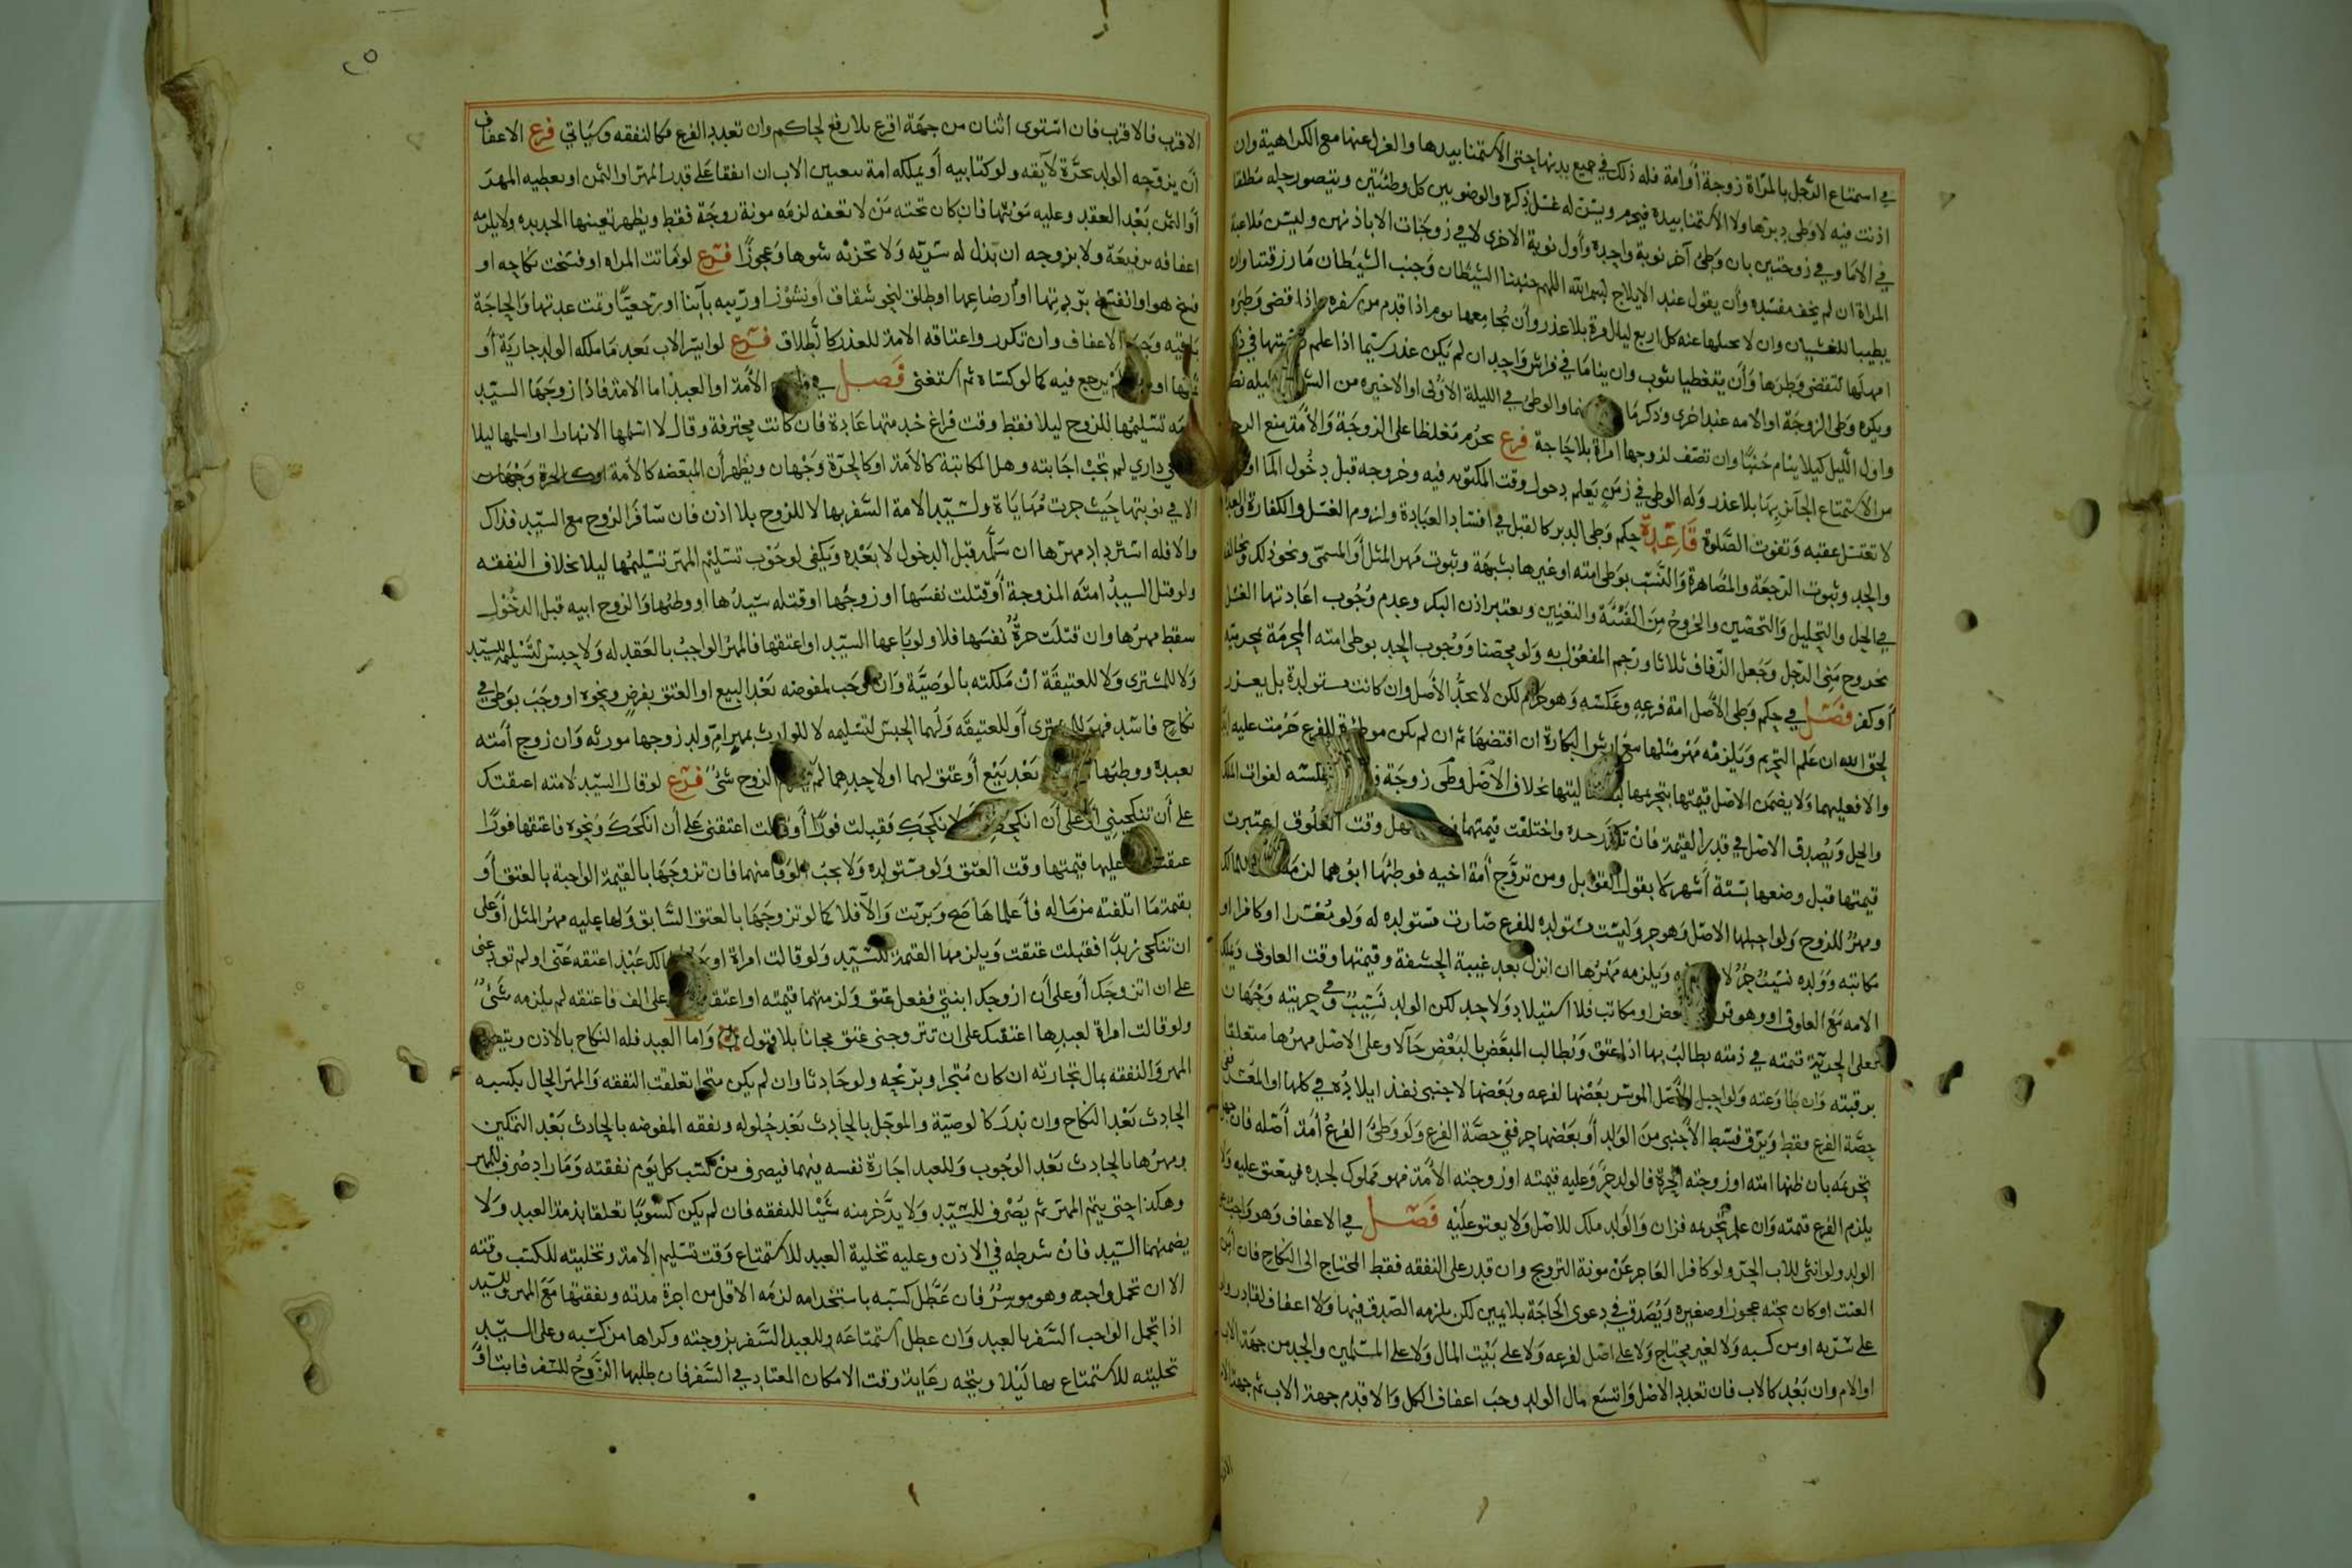 في استمتاع الرجل بالمرأة زوجة أو امة فله ذلك في جميع بدنها حتى الاستمنا بيدها والعزل عنها مع الكراهية وان
اذنت فيه لا وطى دبرها ولا الاستمنا بيده فيحرم ويسن له غسل ذكره والوضو بين كل وطئتين ويتصور حله مطلقا
في الاما وفي زوجتين بان وطئ آخر نوبة واحدة وأول نوبة الاخرى لا في زوجات الا باذنهن وليس ملاعبة
المراة ان لم يخف مفسده وأن يقول عند الايلاج بسم الله اللهم جنبنا الشيطان وجنب الشيطان ما رزقتنا وان
يطيبا للغشيان وان لا يخليها عنه كل اربع ليال مرة بلا عذر وأن يجامعها يوم اذا قدم من سفره واذا قضى وطره
امهلها لتقضي وطرها وأن يتغطيا بثوب وان يناما في فراش واحد ان لم يكن عذر سيما اذا علم
ويكره وطى الزوجة او الامه عند اخرى وذكرها والوطئ في الليلة الاولى او الاخيره من الشهر
واول الليل كيلا ينام جنبًا وان تصف لزوجها امراة بلا حاجة فرع يحرم مغلظا على الزوجة والأمة منع الرجل
من الاستمتاع الجائز بها بلا عذر وله الوطى في زمن يعلم دخول وقت المكتوبه فيه وخروجه قبل دخول الما او
لا تغتسل عقبه وتفوت الصلوة قاعدة حكم وطى الدبر كالقبل في افساد العبادة ولزوم الغسل والكفارة
والحد وثبوت الرجعة والمصاهرة والنسب بوطى امته او غيرها بشبهة وثبوت مهر المثل أو المسمى ونحو ذلك
في الحل والتحليل والتحصين والخروج من الفيئة والتعنين ويعتبر اذن البكر وعدم وجوب اعادتها الغسل
بخروج مني الرجل وجعل الزفاف ثلاثا ورجم المفعول به ولو محصنا ووجوب الحد بوطى امته المحرمة
أو كفر فصل في حكم وطى الأصل امة فرعه وعكسه وهو حرام لكن لا يحد الأصل وان كانت مستولدة بل يعزر
لحق الله ان علم التحريم ويلزمه مهر مثلها مع ارش البكارة ان افتضها ثم ان لم يكن موطوءة للفرع حرمت عليه
والا فعليهما ولا يضمن الاصل قيمتها بتحريمها بخلاف الأصل وطى زوجة
والحل ويصدق الاصل في قدر القيمة فان تكرر حده واختلفت قيمتها وقت العلوق اعتبرت
قيمتها قبل وضعها بستة أشهر كما يقول القوابل ومن تزوج أمة اخيه فوطئها ابوهما لزمه
ومهر للزوج ولو احبلها الاصل وهو حر وليست مستولده للفرع صارت مستولده له ولو معسرا او كافرا او
مكاتبه وولده نسيب حر لا ويلزمه مهرها ان انزل بعد غيبة الحشفة وقيمتها وقت العلوق
الامه مع العلوق او وهو قن او مكاتب فلا استيلاد ولا حد لكن الولد نسيب وفي حريته وجهان
فعلى الحرية قيمته في ذمته يطالب بها اذا عتق ويطالب المبعض بالبعض حالا وعلى الاصل مهرها متعلقا
برقبته وان طاوعته ولو احبل الأصل الموسر بعضها لفرعه وبعضها لاجنبى نفذ ايلاده في كلها او المعسر
حصة الفرع فقط ويرق قسط الأجنبي من الولد أو بعضها حر ففي حصة الفرع ولو وطئ الفرع أمة أصله فان
بتحريمه بان ظنها امته او زوجته الحرة فالولد حر وعليه قيمته او زوجته الأمة فهو مملوك لجده فيعتق عليه ولا
يلزم الفرع قيمته وان علم بتحريمه فزان والولد ملك للاصل ولا يعتق عليه فصل في الاعفاف وهو واجب
الولد ولو انثى للاب الحر ولو كافرا العاجز عن مونة التزويج وان قدر على النفقه فقط المحتاج الى النكاح فان
العنت او كان تحته عجوز او صغيره ويصدق في دعوى الحاجة بلا يمين لكن يلزمه الصدق فيها ولا اعفاف لقادر
على سريه او من كسبه ولا لغير محتاج ولا على اصل لفرعه ولا على بيت المال ولا على المسلمين والجد من جهة الاب
او الام وان بعد كالاب فان تعدد الاصل واتسع مال الولد وجب اعفاف الكل والا قدم جهة الاب ثم جهة
الاقرب فالاقرب فان استوى اثنان من جهة اقرع بلا رفع لحاكم وان تعدد الفرع فكالنفقه وسياتي فرع الاعفاف
أن يزوجه الولد بحرة لائقة ولو كتابيه أو يملكه امة بتعيين الاب ان اتفقا على قدر المهر او الثمن او يعطيه المهر
أو الثمن بعد العقد وعليه مؤنتها فان كان تحته من لا تعفه لزمه مونة زوجة فقط ويظهر تعينها الجديده ولا يلزمه
اعفافه برفيعة ولا بزوجه ان بذل له سريه ولا تجزئه شوها وعجوزًا فرع لو ماتت المراه او فسخت نكاحه او
فسخ هو او انفسخ بردتها او ارضاعها او طلق لنحو شقاق أو نشوز او ريبه بآينا او رجعيًا وتمت عدتها والحاجة
باقيه وجب الاعفاف وان تكرر واعتاقه الامة للعذر كالطلاق فرع لو ايسر الاب بعد ما ملكه الولد جارية أو
او لم يرجع فيه كما لو كساه ثم استغنى فصل في الأمة او العبد اما الامة فاذا زوجها السيد
تسليمها للزوج ليلا فقط وقت فراغ خدمتها عادة فان كانت محترفة وقال لا اسلمها الا نهارا او اسلمها ليلا
في داري لم تجب اجابته وهل المكاتبة كالأمة او كالحرة وجهان ويظهر أن المبعضه كالأمة او كالحرة وجهان
الا في نوبتها حيث جرت مهاياة ولسيد الامة السفر بها لا للزوج بلا اذن فان سافر الزوج مع السيد فذاك
والا فله استرداد مهرها ان سلمه قبل الدخول لا بعده ويكفي لوجوب تسليم المهر تسليمها ليلا بخلاف النفقه
ولو قتل السيد امته المزوجة أو قتلت نفسها او زوجها او قتله سيدها او وطئها والزوج ابيه قبل الدخول
سقط مهرها وان قتلت حرة نفسها فلا ولو باعها السيد او اعتقها فالمهر الواجب بالعقد له ولا حبس لتسليمه للسيد
ولا للمشترى ولا للعتيقة ان ملكته بالوصية وان وجب لمفوضه بعد البيع او العتق بفرض ونحوه او وجب بوطى في
نكاح فاسد فهو للمشترى أو للعتيقه ولهما الحبس لتسليمه لا للوارث بمهر ام ولد زوجها مورثه وان زوج أمته
بعبده ووطئها بعد بيع أو عتق لهما او لاحدهما الزوج شئ فرع لو قال السيد لامته اعتقتك
على أن تنكحيني أو على أن انكحك لانكحك فقبلت فورًا أو قالت اعتقني على أن انكحك ونحوه فاعتقها فورًا
عتقت عليها قيمتها وقت العتق ولو مستولده ولا يجب الوفا منهما فان تزوجها بالقيمة الواجبة بالعتق أو
بقيمة ما اتلفته من ماله فاعلماها صح وبريت والا فلا كما لو تزوجها بالعتق السابق ولها عليه مهر المثل أو على
ان تنكحى زيدًا فقبلت عتقت ويلزمها القيمة للسيد ولو قالت امراة او لمالك عبد اعتقه عني او لم تقل عني
على ان اتزوجك أو على أن ازوجك ابنتي ففعل عتق ولزمتهما قيمته او اعتقه على الف فاعتقه لم يلزمه شئ
ولو قالت امراة لعبدها اعتقتك على ان تتزوجني عتق مجانا بلا قبول واما العبد فله النكاح بالاذن
المهر والنفقه بمال تجارته ان كان متجرا وبربحه ولو حادثا وان لم يكن متجرا تعلقت النفقه والمهر الحال بكسبه
الحادث بعد النكاح وان ندر كالوصية والموجل بالحادث بعد حلوله ونفقه المفوضه بالحادث بعد التمكين
ومهرها بالحادث بعد الوجوب وللعبد اجارة نفسه فيهما فيصرف من كسب كل يوم نفقته وما زاد صرف للمهر
وهكذا حتى يتم المهر ثم يصرف للسيد ولا يدخر منه شيئا للنفقه فان لم يكن كسوبًا تعلقا بذمة العبد ولا
يضمنهما السيد فان شرطه في الاذن وعليه تخلية العبد للاستمتاع وقت تسليم الامة وتخليته للكسب وقته
الا ان تحمل واجبه وهو موسر فان عطل كسبه باستخدامه لزمه الاقل من اجرة مدته ونفقتها مع المهر وللسيد
اذا تحمل الواجب السفر بالعبد وان عطل استمتاعه وللعبد السفر بزوجته وكراها من كسبه وعلى السيد
تخليته للاستمتاع بها ليلا ويتجه رعاية وقت الامكان المعتاد في السفر فان طلبها الزوج للسفر فابت او